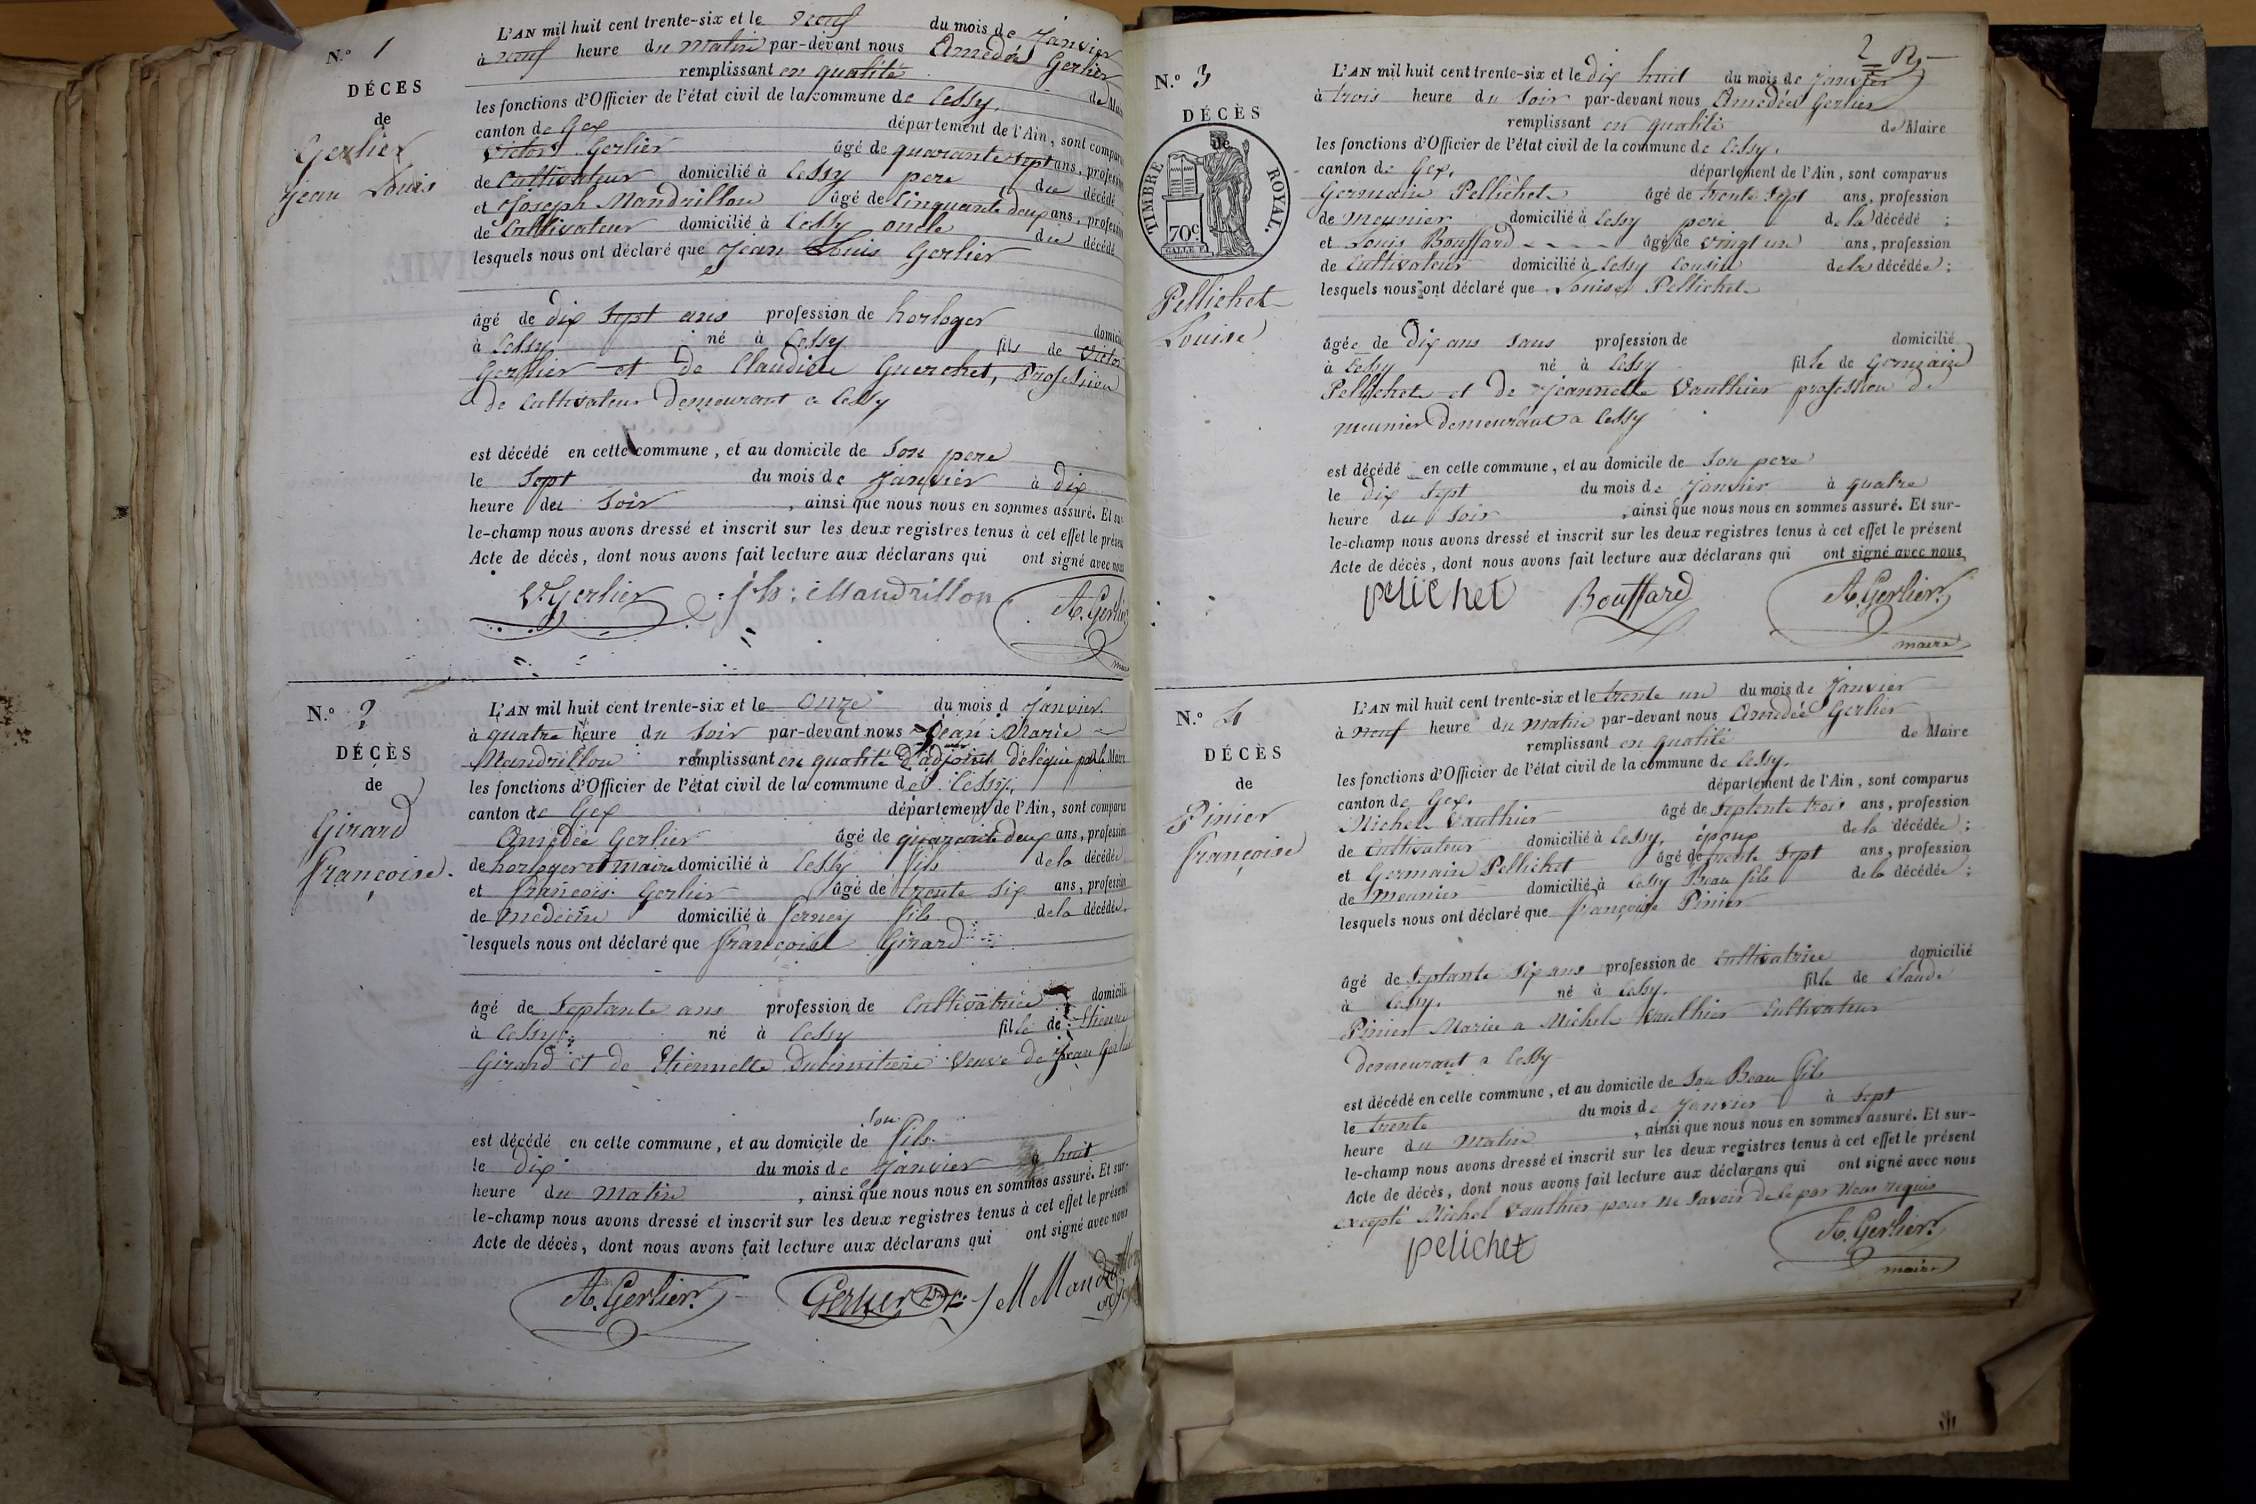 N.° 1
DÉCES
de
Gerlier
Jean Louis
L'AN mil huit cent trente-six et le neuf du mois de Janvier
à neuf heure du matin par-devant nous Amedée Gerlier
remplissant en qualité de Mair
les fonctions d'Officier de l'état civil de la commune de Cessy.
canton de Gex département de l'Ain, sont comparu
Victor Gerlier âgé de quarante sept ans, profession
de Cultivateur domicilié à Cessy pere du décédé
et Joseph Mandrillon âgé de Cinquante deux ans, profession
de Cultivateur domicilié à Cessy oncle du décédé
lesquels nous ont déclaré que Jean Louis Gerlier
âgé de dix Sept ans profession de horloger domicili
à Cessy né à Cessy fils de Victor
Gerlier et de Claudine Guerchet, Profession
de Cultivateur demeurant a Cessy
est décédé en cette commune, et au domicile de Son pere
le Sept du mois de Janvier à dix
heure du Soir, ainsi que nous nous en sommes assuré. Et sur-
le-champ nous avons dressé et inscrit sur les deux registres tenus à cet effet le présent
Acte de décès, dont nous avons fait lecture aux déclarans qui ont signé avec nous
Vr. Gerlier jh: Mandrillon A. Gerlier
N.° 2
DÉCÈS
de
Girard
françoise.
L'AN mil huit cent trente-six et le Onze du mois d Janvier
à quatre heure du Soir par-devant nous Jean Marie
Mandrillon remplissant en qualité d'adjoint délégué par le Maire
les fonctions d'Officier de l'état civil de la commune de Cessy.
canton de Gex département de l'Ain, sont comparus
Amédée Gerlier âgé de quarante deux ans, profession
de horloger et maire domicilié à Cessy fils de la décédée
et françois Gerlier âgé de trente six ans, profession
de medecin domicilié à ferney fils de la décédée.
lesquels nous ont déclaré que françoise Girard
âgé de Septante ans profession de Cultivatrice domicilié
à Cessy né à Cessy fille de Etienne
Girard et de Etiennette Dutimitiere veuve de Jean Gerlier
est décédé en cette commune, et au domicile de Son fils
le dix du mois de Janvier à huit
heure du matin, ainsi que nous nous en sommes assuré. Et sur-
le-champ nous avons dressé et inscrit sur les deux registres tenus à cet effet le présent
Acte de décès, dont nous avons fait lecture aux déclarans qui ont signé avec nous
A. Gerlier. Gerlier J M Mandrillon
2
N.° 3
DÉCÈS
de
TIMBRE ROYAL.
70c
Pellichet
Louise
L'AN mil huit cent trente-six et le dix huit du mois de Janvier
à trois heure du Soir par-devant nous Amedée Gerlier
remplissant en qualité de Maire
les fonctions d'Officier de l'état civil de la commune de Cessy.
canton de Gex. département de l'Ain, sont comparus
Germain Pellichet âgé de trente Sept ans, profession
de meunier domicilié à Cessy pere de la décédé ;
et Louis Bouffard âgé de vingt un ans, profession
de Cultivateur domicilié à Cessy Cousin de la décédée ;
lesquels nous ont déclaré que Louise Pellichet
âgée de Dix ans Sans profession de domicilié
à Cessy né à Cessy fille de Germain
Pellichet et de Jeannette Vauthier profession de
meunier demeurant a Cessy
est décédé en cette commune, et au domicile de Son pere
le dix Sept du mois de Janvier à quatre
heure du Soir, ainsi que nous nous en sommes assuré. Et sur-
le-champ nous avons dressé et inscrit sur les deux registres tenus à cet effet le présent
Acte de décès, dont nous avons fait lecture aux déclarans qui ont signé avec nous
pelichet Bouffard A. Gerlier.
maire
N.° 4
DÉCÈS
de
Pinier
françoise
L'AN mil huit cent trente-six et le trente un du mois de Janvier
à neuf heure du matin par-devant nous Amedée Gerlier
remplissant en qualité de Maire
les fonctions d'Officier de l'état civil de la commune de Cessy.
canton de Gex. département de l'Ain, sont comparus
Michel Vauthier âgé de Septente trois ans, profession
de Cultivateur domicilié à Cessy, époux de la décédée ;
et Germain Pellichet âgé de trente Sept ans, profession
de meunier domicilié à Cessy Beau fils de la décédée ;
lesquels nous ont déclaré que françoise Pinier
âgé de Septante Six ans profession de Cultivatrice domicilié
à Cessy. né à Cessy. fille de Claude
Pinier Mariée a Michel Vauthier Cultivateur
demeurant a Cessy
est décédé en cette commune, et au domicile de Son Beau fils
le trente du mois de Janvier à Sept
heure du Matin, ainsi que nous nous en sommes assuré. Et sur-
le-champ nous avons dressé et inscrit sur les deux registres tenus à cet effet le présent
Acte de décès, dont nous avons fait lecture aux déclarans qui ont signé avec nous
excepté Michel Vauthier pour ne Savoir de ce par Nous requis
pelichet A. Gerlier.
maire